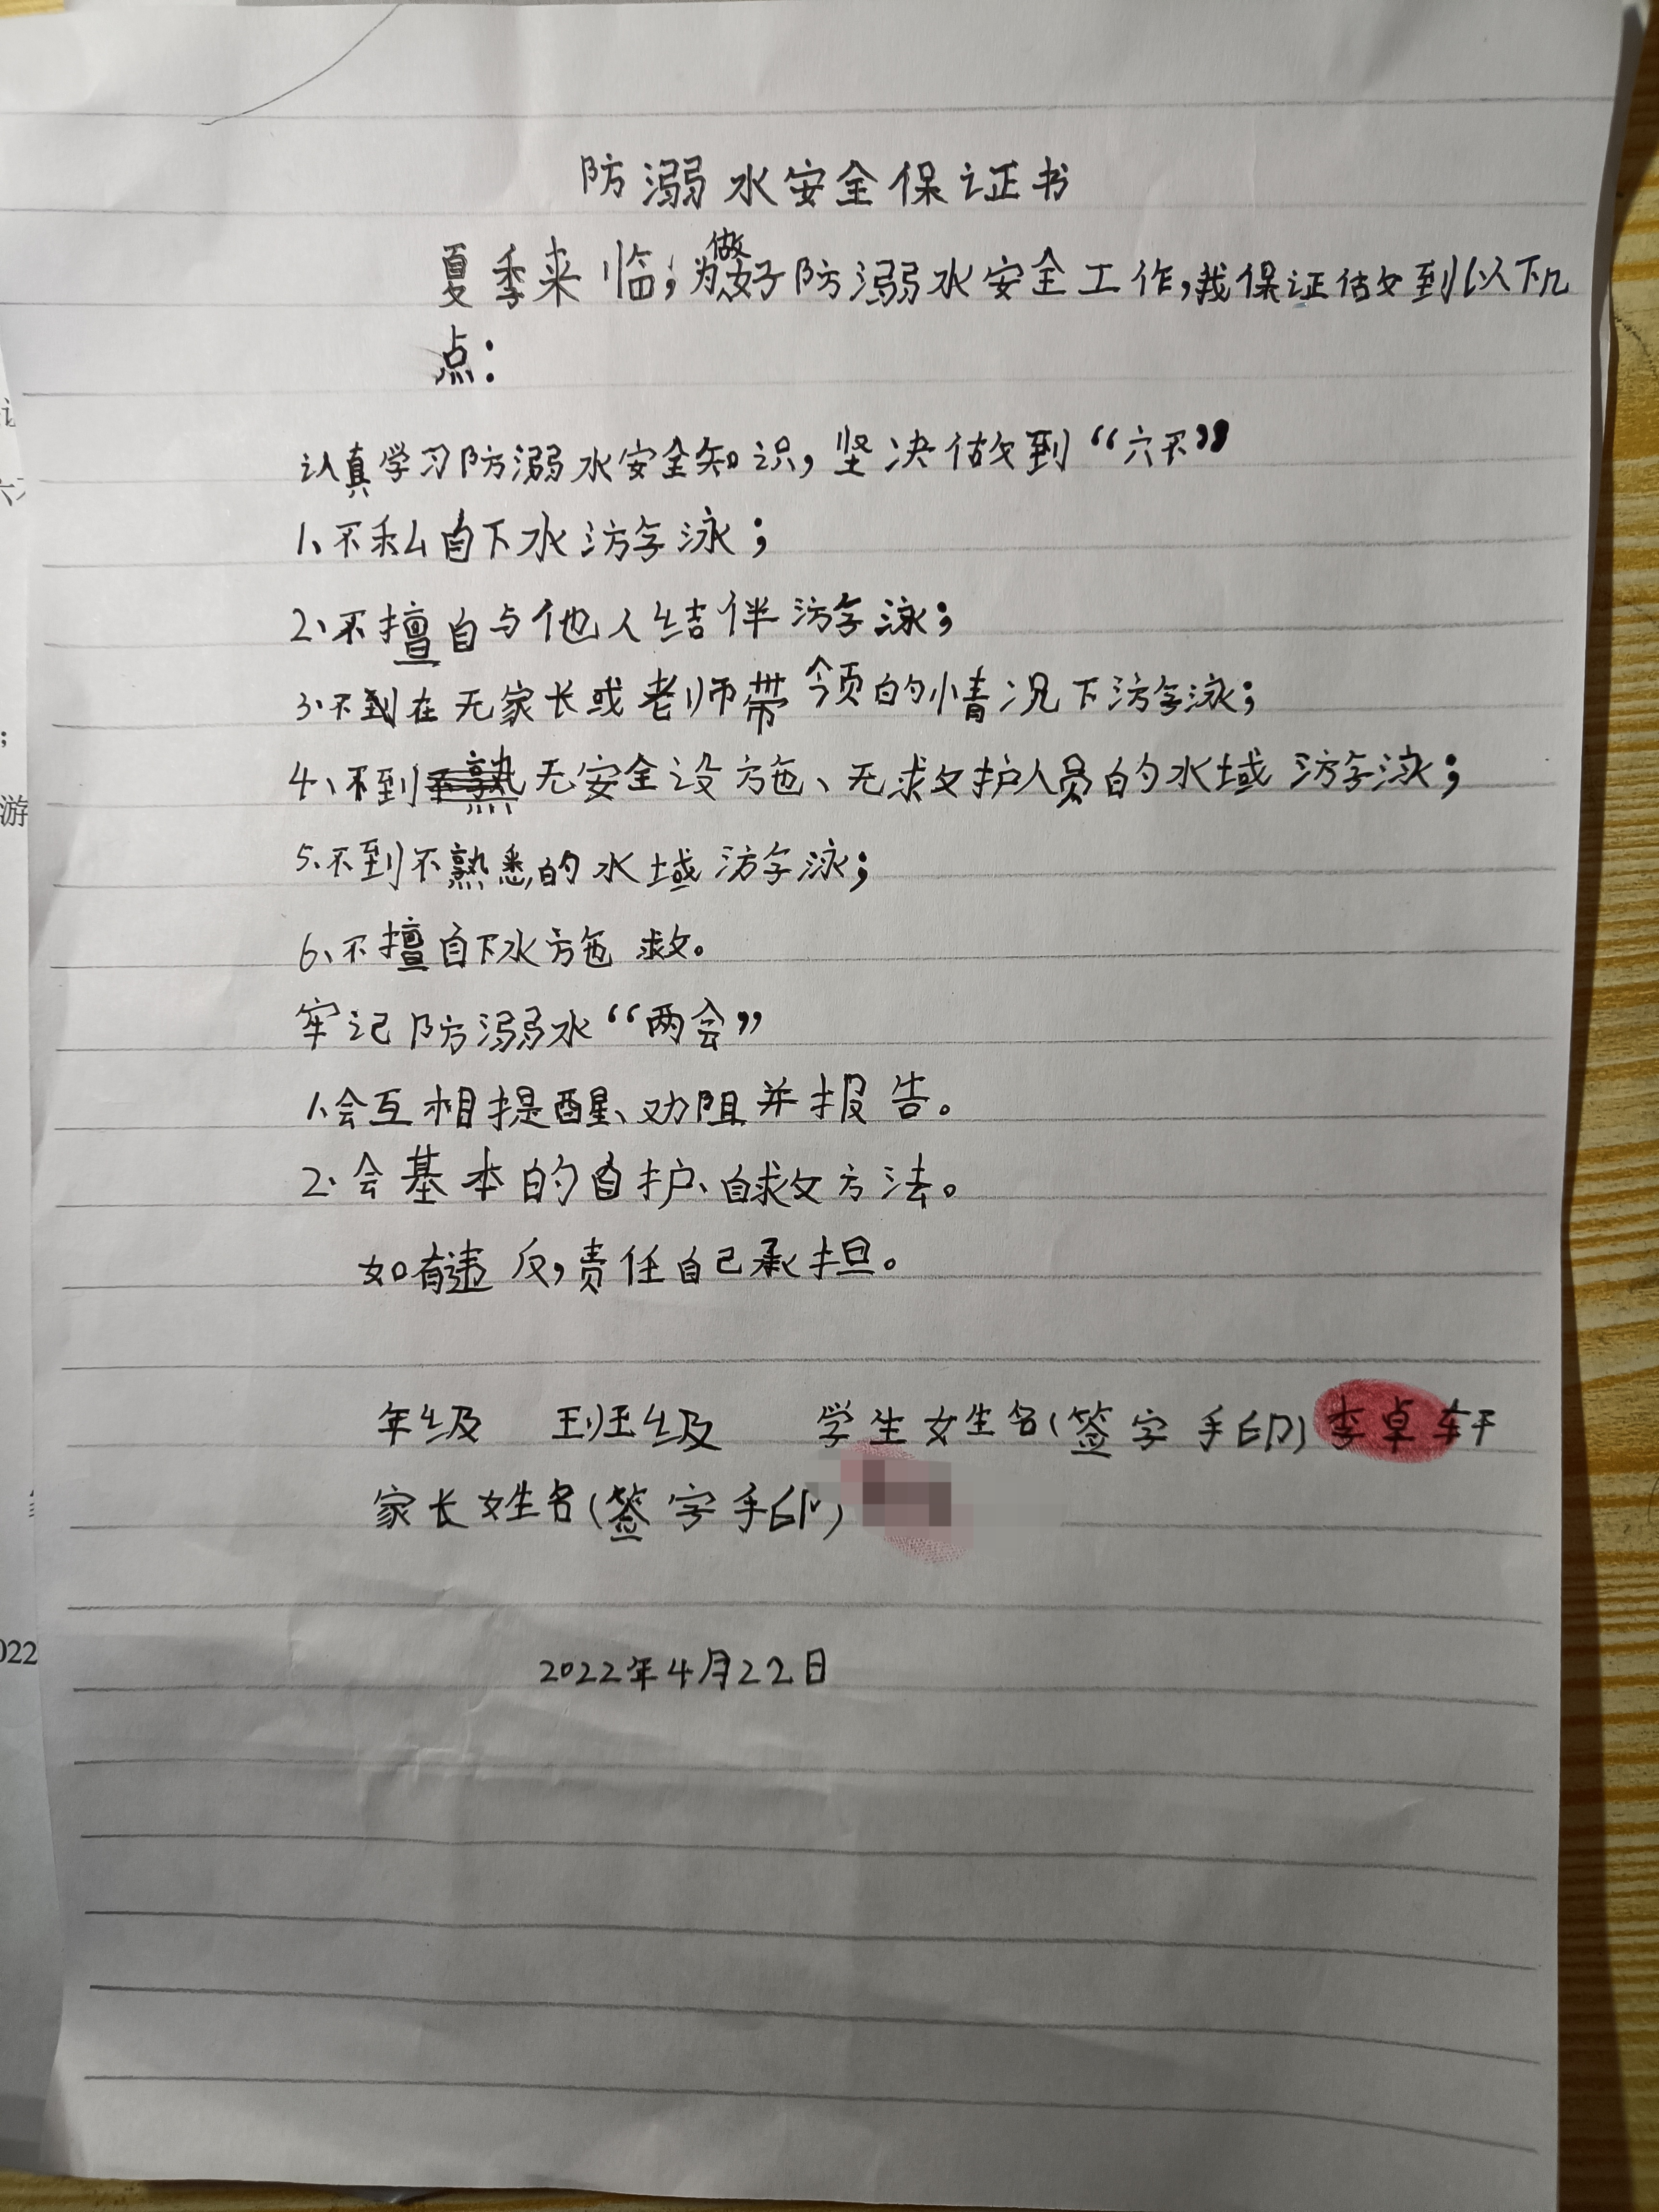 防溺水安全保证书
夏季来临，为做好防溺水安全工作，我保证做到以下几
点：
认真学习防溺水安全知识，坚决做到“六不”
1、不私自下水游泳；
2、不擅自与他人结伴游泳；
3、不到在无家长或老师带领的情况下游泳；
4、不到无安全设施、无救护人员的水域游泳；
5、不到不熟悉的水域游泳；
6、不擅自下水施救。
牢记防溺水“两会”
1、会互相提醒、劝阻并报告。
2、会基本的自护、自救方法。
如有违反，责任自己承担。
年级 班级 学生姓名（签字手印）李卓轩
家长姓名（签字手印）
2022年4月22日
游
022